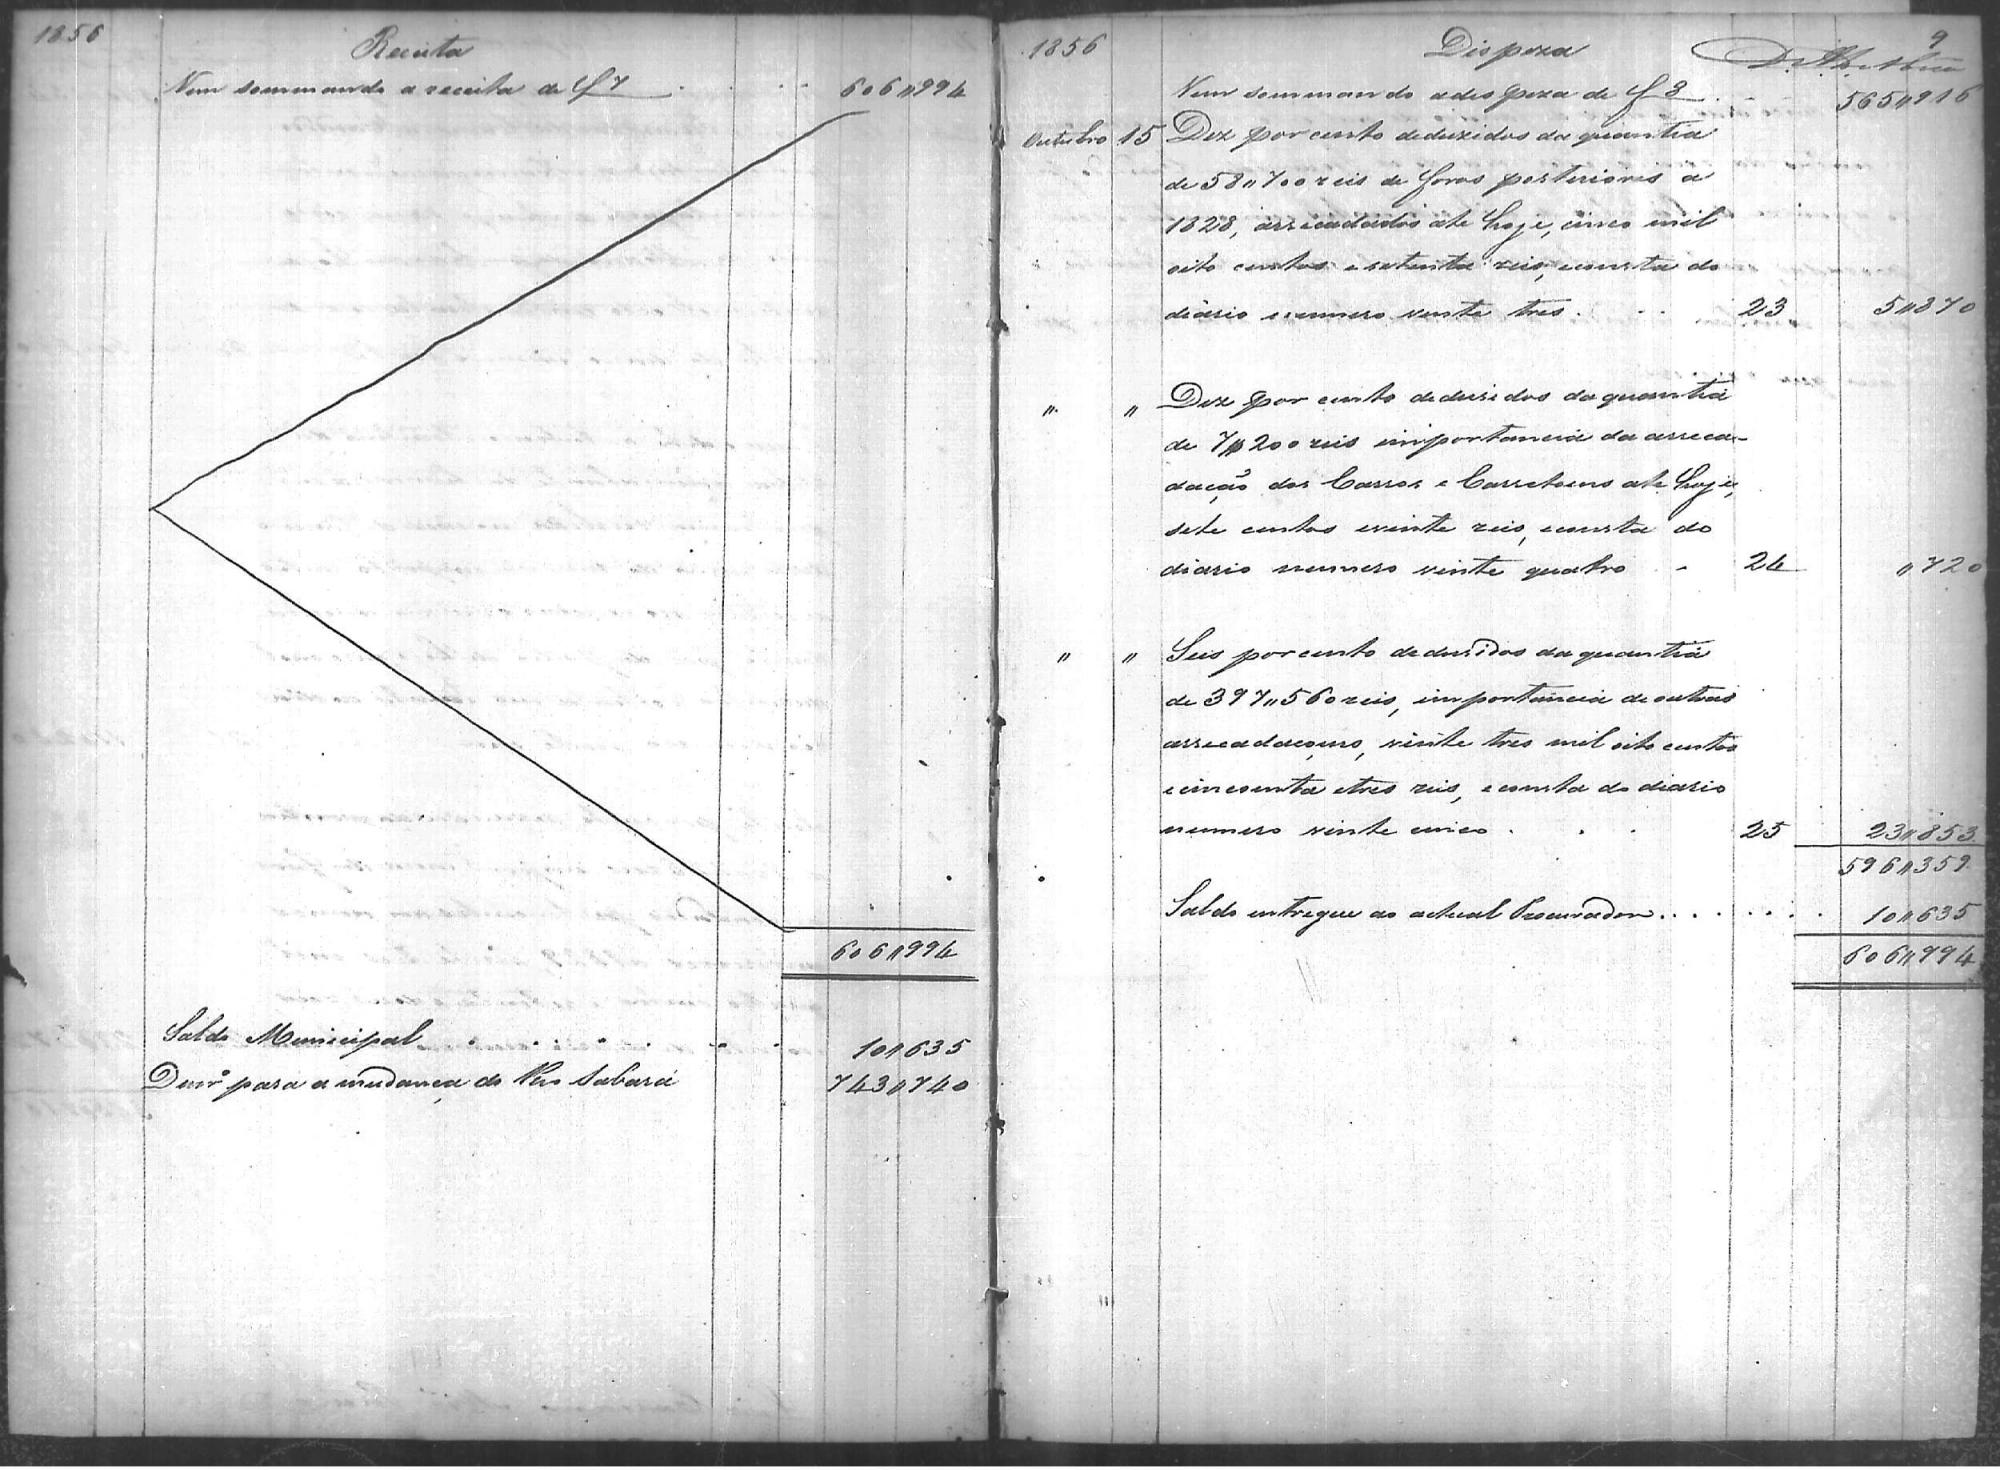 1856
Receita
Vem sommando a receita de f 7 . . . 606〃994
606〃994
Saldo Municipal . . . . . . . 10〃635
Dinrº para a mudança do Rio Sabará 743〃740
9
1856
Dispeza
Vem sommando a despeza de f 8 . . 565〃916
Outubro 15 Dez por cento deduzidos da quantia
de 58〃700 reis de foros posteriores a
1828, arrecadados ate hoje, cinco mil
oito centos e setenta reis, consta do
diario numero vinte tres . . . 23 5〃870
〃 〃 Dez por cento deduzidos da quantia
de 7〃200 reis importancia da arreca-
dação dos Carros e Carretoens ate hoje,
sete centos e vinte reis, consta do
diario numero vinte quatro - 24 〃720
〃 〃 Seis por cento deduzidos da quantia
de 397〃560 reis, importancia de outras
arrecadaçoens, vinte tres mil oito centos
e cincoenta e tres reis, consta do diario
numero vinte cinco . . . 25 23〃853
596〃359
Saldo entregue ao actual Procurador . . . . . . . 10〃635
606〃994